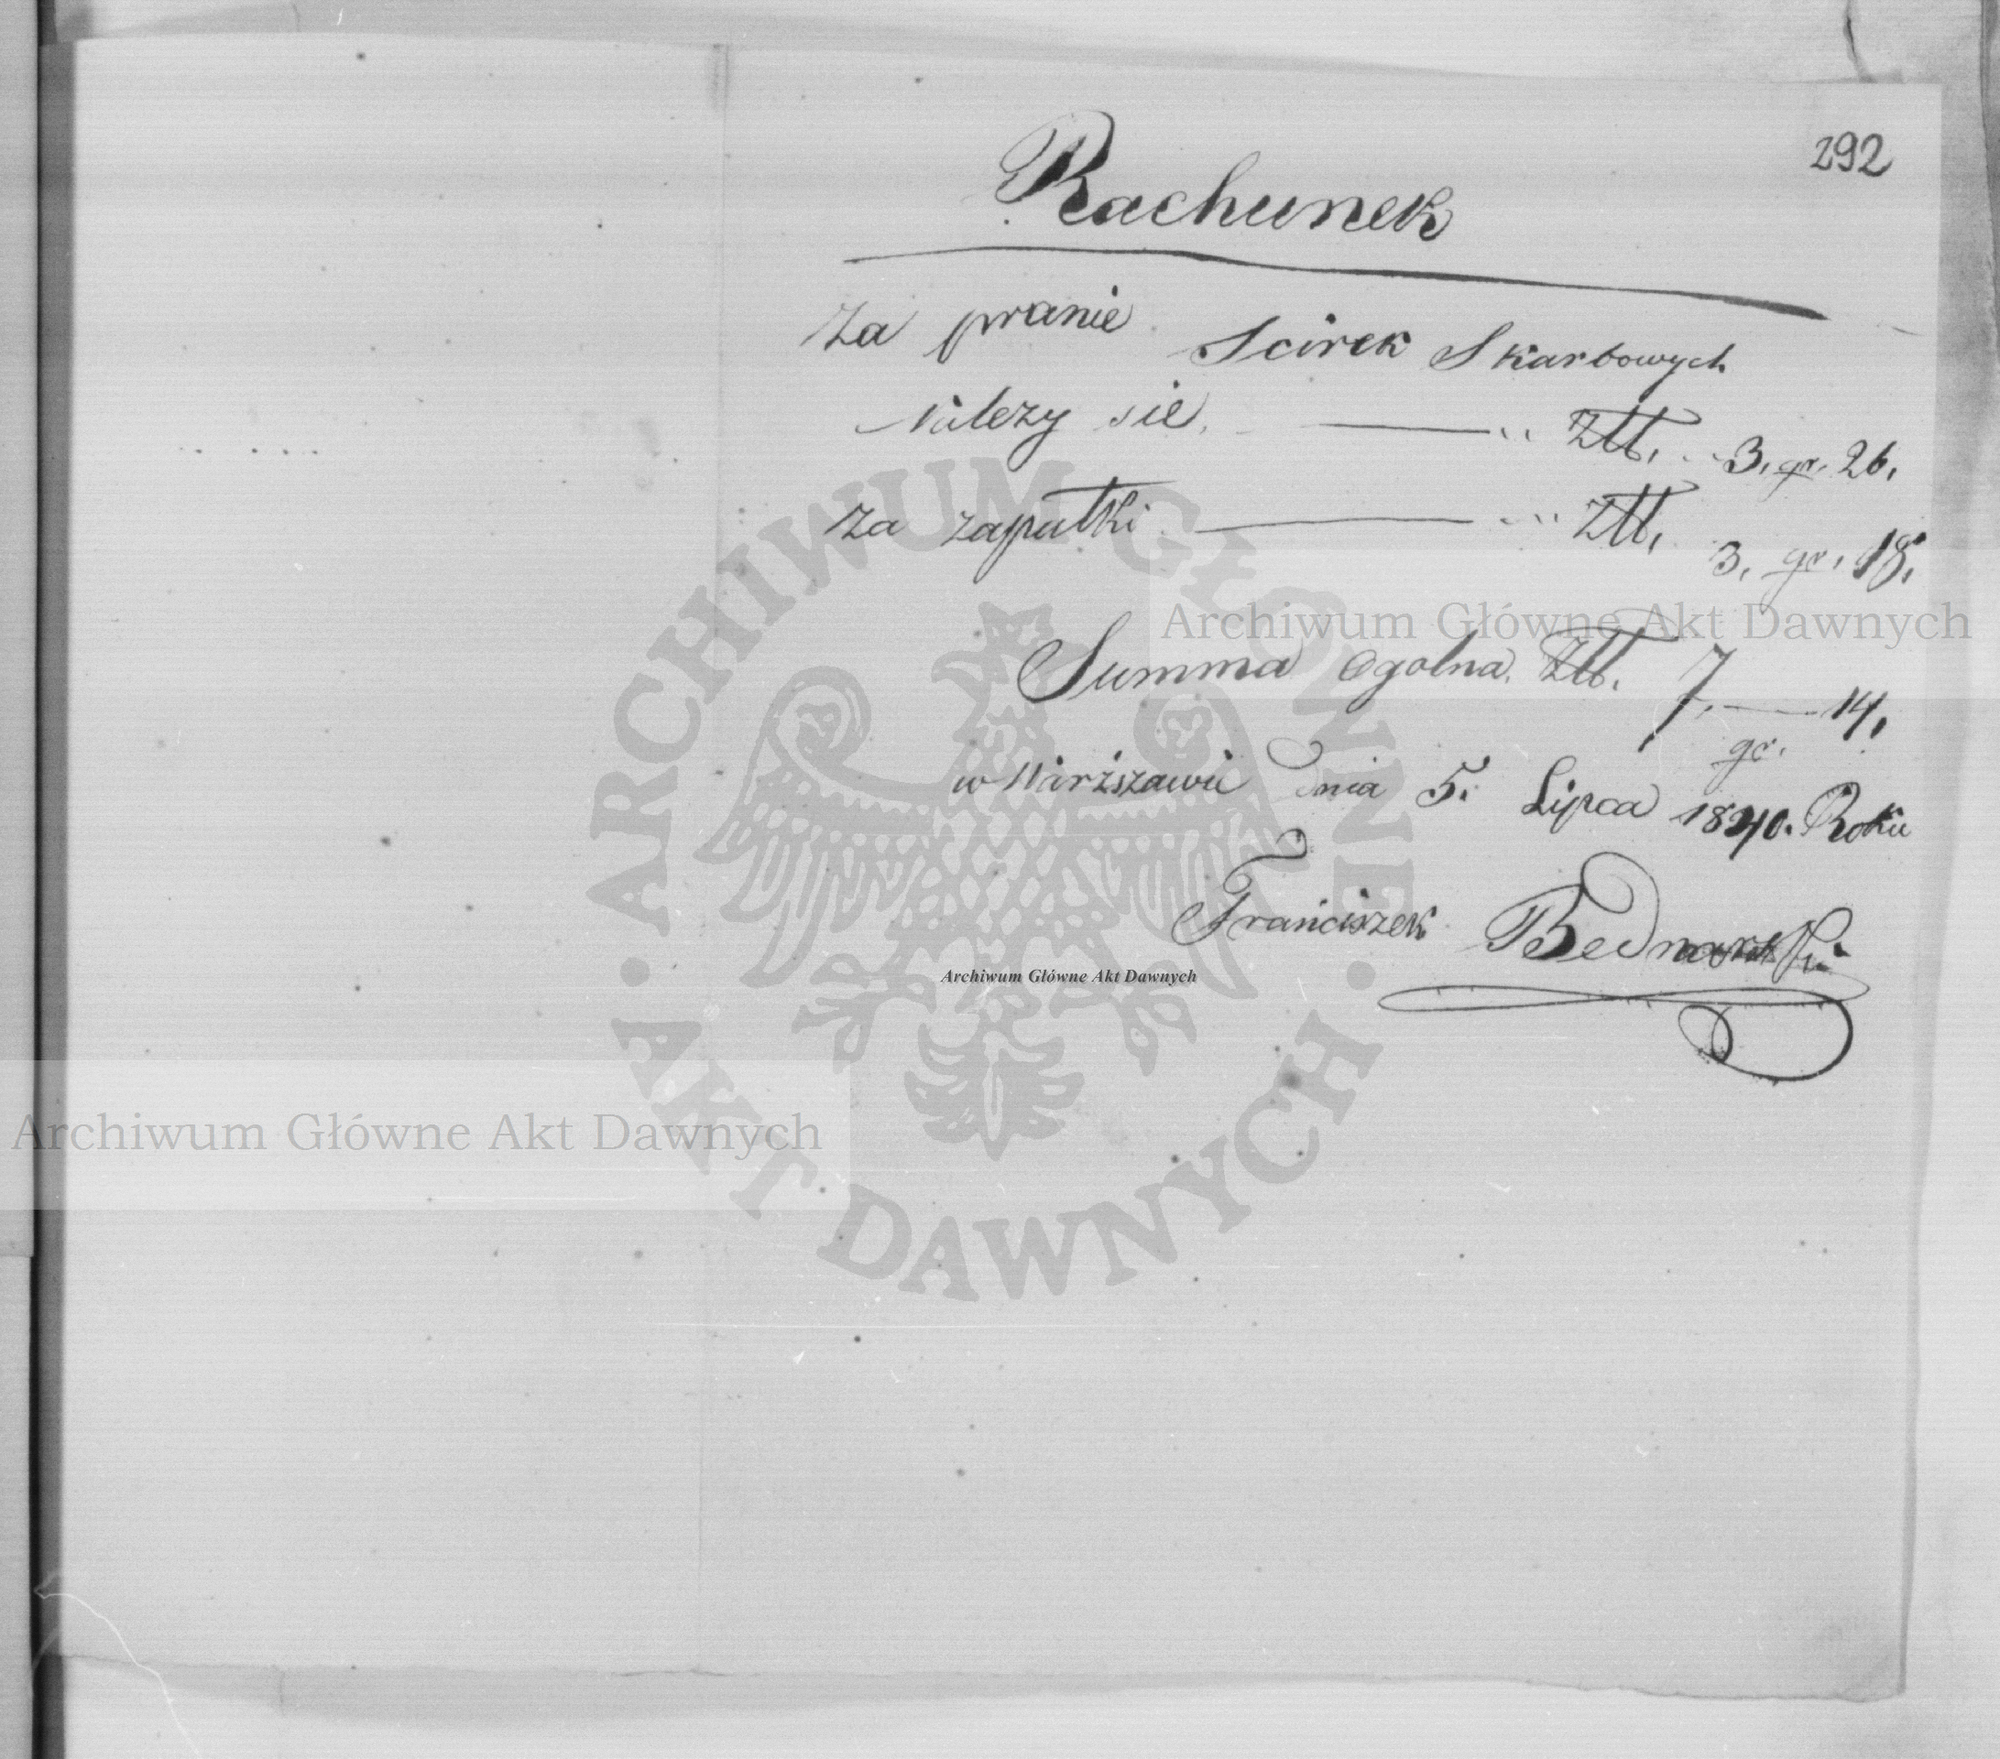 292
Rachunek
Za pranie Scirek Skarbowych
Nalezy sie. Złł. 3. gr. 26.
Za zapałki Złł. 3. gr. 18.
Summa Ogolna. Złł. 7. — 14.
gr.
w Warższawie Dnia 5. Lipca 1840. Roku
Franciszek Bednarski
ARCHIWUM GŁÓWNE AKT DAWNYCH
Archiwum Główne Akt Dawnych
Archiwum Główne Akt Dawnych
Archiwum Główne Akt Dawnych